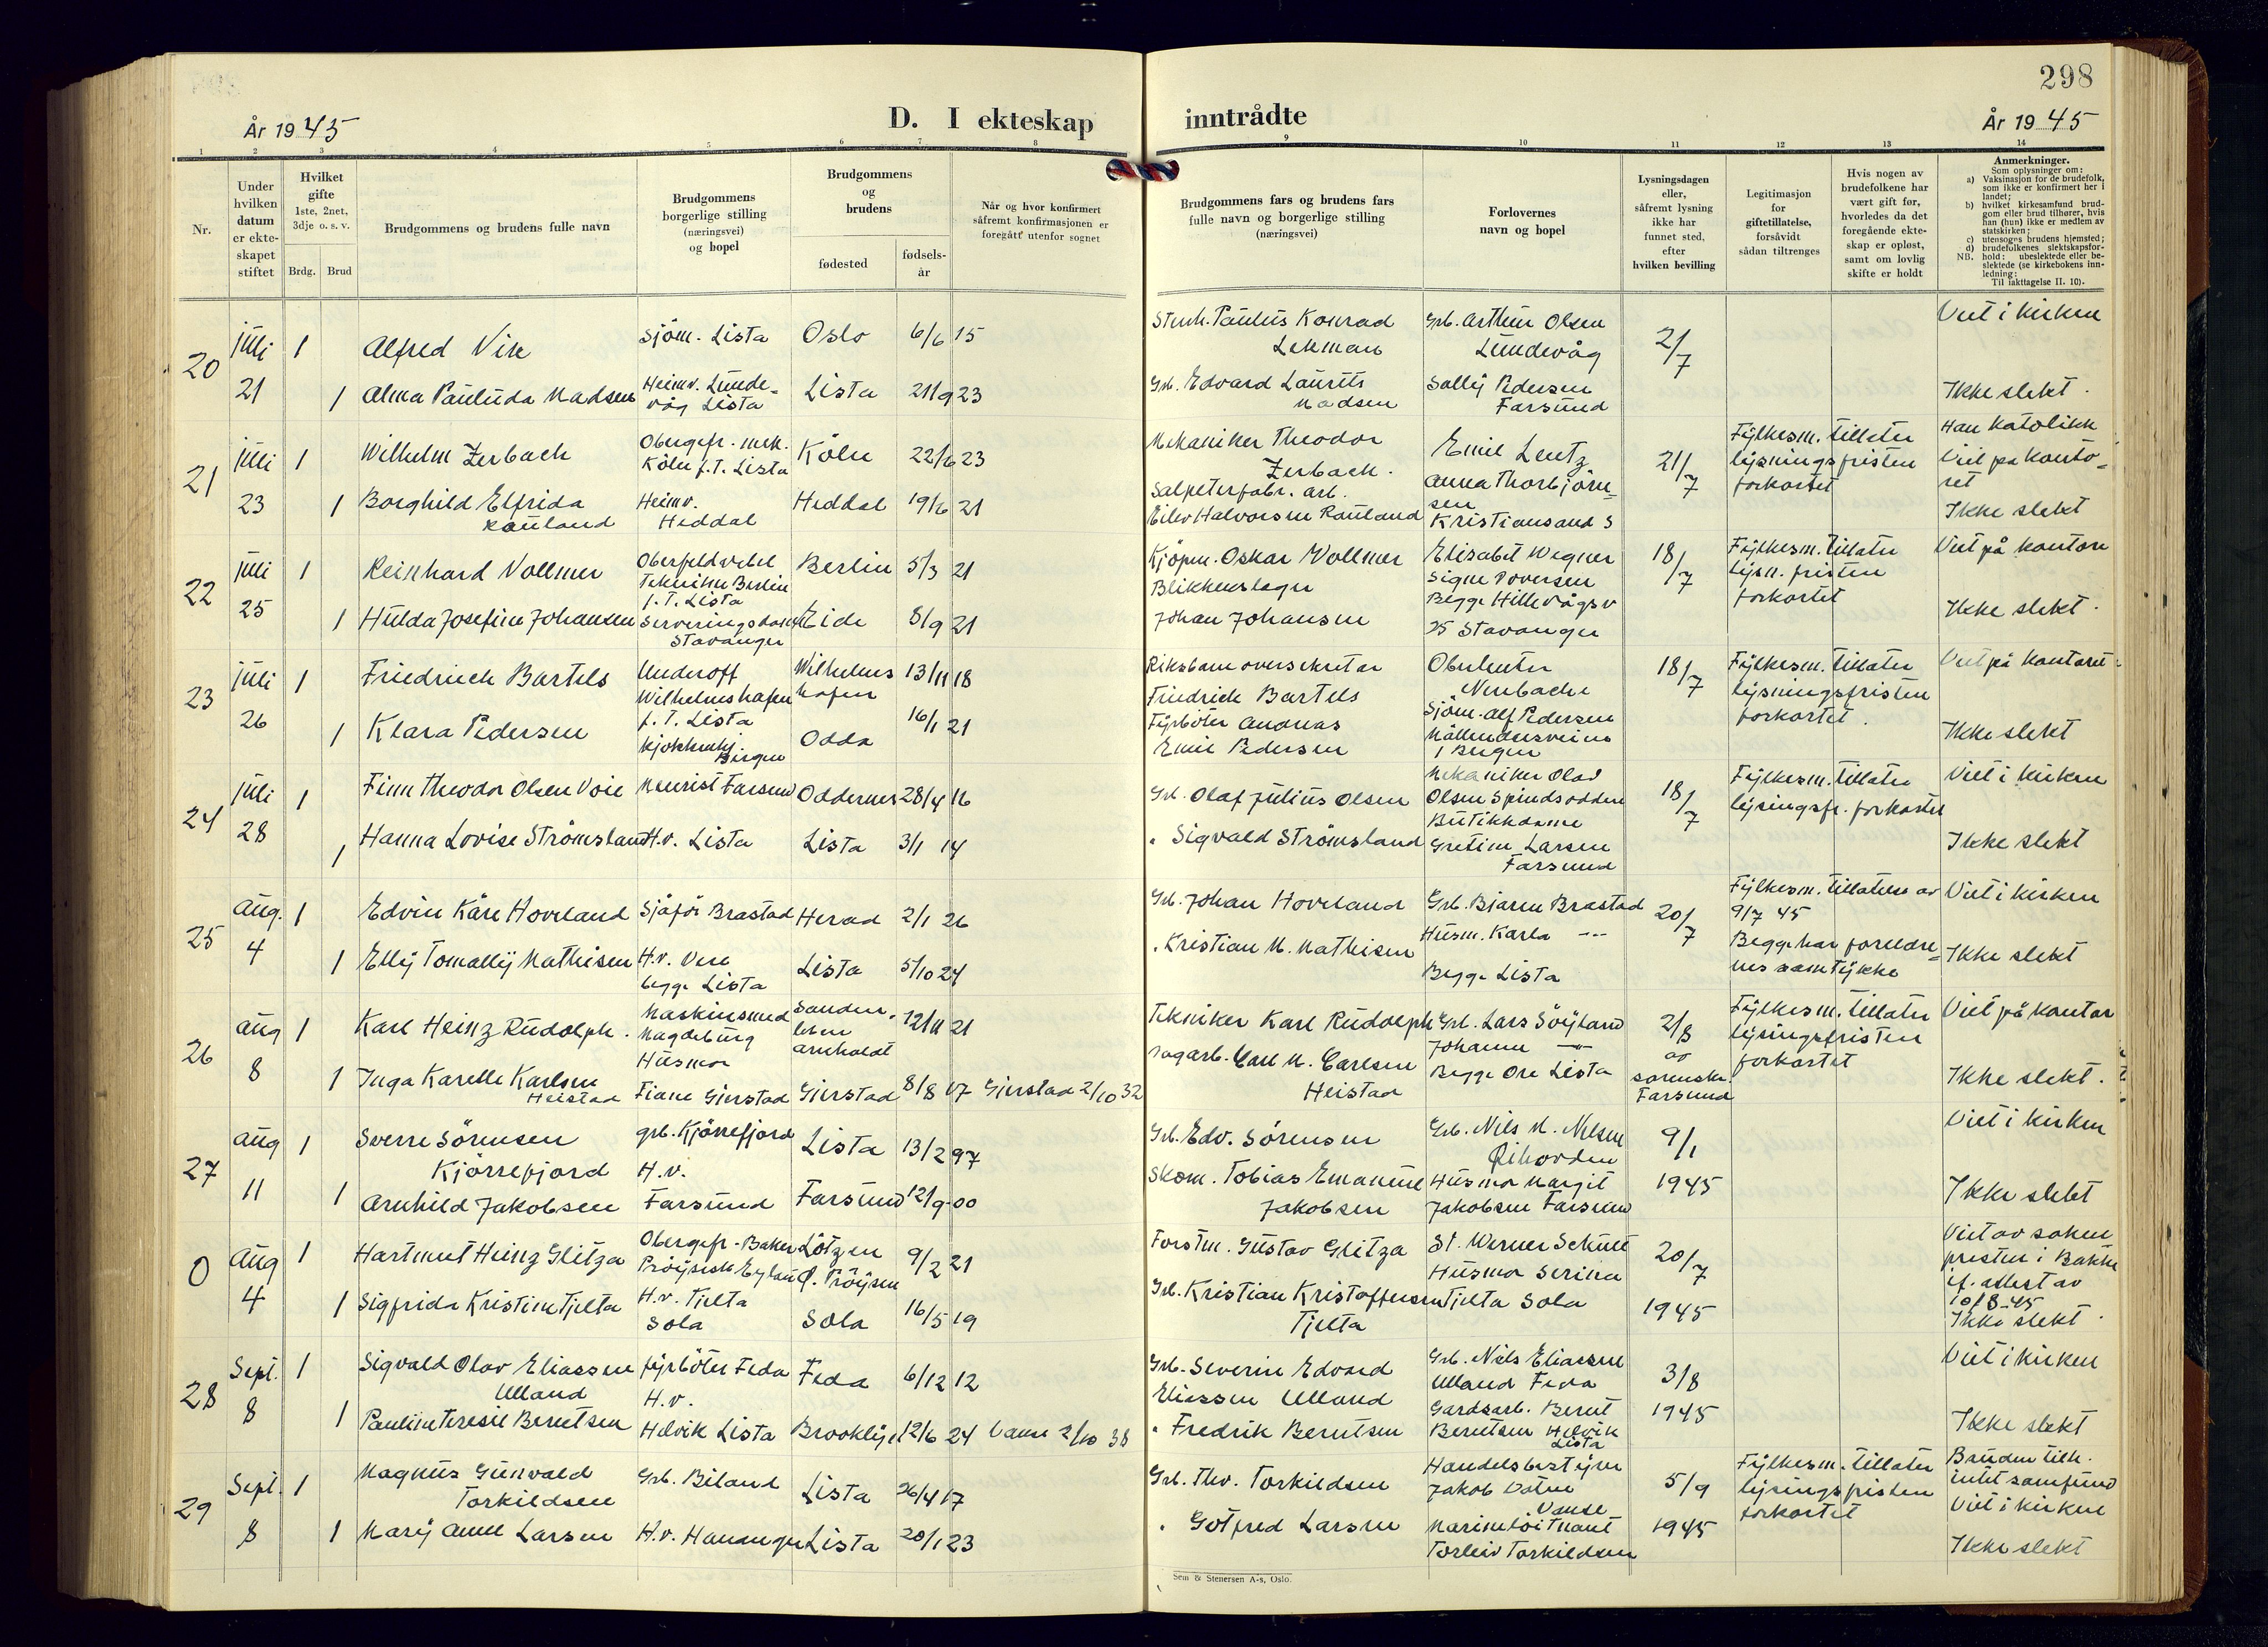 298
År 1945
D. I ekteskap
inntrådte
År 1945
1 2 3 4 5 6 7 8 9 10 11 12 13 14
Nr.
Under
hvilken
datum
er ekte-
skapet
stiftet
Hvilket
gifte
1ste, 2net,
3dje o. s. v.
Brdg. Brud
Brudgommens og brudens fulle navn
Brudgommens
borgerlige stilling
(næringsvei)
og bopel
Brudgommens
og
brudens
fødested
fødsels-
år
Når og hvor konfirmert
såfremt konfirmasjonen er
foregått utenfor sognet
Brudgommens fars og brudens fars
fulle navn og borgerlige stilling
(næringsvei)
Forlovernes
navn og bopel
Lysningsdagen
eller,
såfremt lysning
ikke har
funnet sted,
efter
hvilken bevilling
Legitimasjon
for
giftetillatelse,
forsåvidt
sådan tiltrenges
Hvis nogen av
brudefolkene har
vært gift før,
hvorledes da det
foregående ekte-
skap er opløst,
samt om lovlig
skifte er holdt
Anmerkninger.
Som oplysninger om:
a) Vaksinasjon for de brudefolk,
som ikke er konfirmert her i
landet;
b) hvilket kirkesamfund brud-
gom eller brud tilhører, hvis
han (hun) ikke er medlem av
statskirken;
c) utensogns brudens hjemsted;
d) brudefolkenes slektskapsfor-
NB. hold: ubeslektede eller be-
slektede (se kirkebokens inn-
ledning:
Til iakttagelse II. 10).
20
juli
21
1
Alfred Vik
Sjöm. Lista
Oslo
6/6 15
Paulus Konrad
Lekman
Grb. Arthur Olsen
Lundevåg
2/7
Viet i kirken
1
Alma Paulida Madsen
Heimv. Lunde-
våg Lista
Lista
21/9 23
Grb. Edvard Laurits
Madsen
Solly Pedersen
Farsund
Ikke slekt.
21
juli
23
1
Wilhelm Zerbach
Obergefr. mek.
Köln f.T. Lista
Köln
22/6 23
Mekaniker Theodor
Zerbach.
Emil Lentz
21/7
Fylkesm. tillater
lysningsfristen
forkortet
Han katolikk
Viet på konto-
ret
1
Borghild Elfrida
Rauland
Heimv.
Heddal
Heddal
19/6 21
Salpeterfabr. arb.
Eilev Halvorsen Rauland
Anna Thorbjörn-
sen
Kristiansand S
Ikke slekt
22
juli
25
1
Reinhard Vollmer
Oberfeldvebel
Tekniker Berlin
f.T. Lista
Berlin
5/3 21
Kjöpm. Oskar Vollmer
Elisabet Wegner
18/7
Fylkesm. tillater
lysn. fristen
forkortet
Viet på kontore
1
Hulda Josefine Johansen
Serveringsdame
Stavanger
Eide
8/9 21
Blikkenslager
Johan Johansen
Signe
Begge Hillevågsv
25 Stavanger
Ikke slekt.
23
juli
26
1
Friedrich Bartels
Underoff
Wilhelmshafen
f.T. Lista
Wilhelms
hafen
13/11 18
Riksbaneoversekretær
Friedrich Bartels
Oberleuten
18/7
Fylkesm. tillater
lysningsfristen
forkortet.
Viet på kontoret.
1
Klara Pedersen
Bergen
Odda
16/1 21
Fyrböter Andreas
Emil Pedersen
Sjöm. Alf Pedersen
1 Bergen
Ikke slekt
24
juli
28
1
Finn Theodor Olsen Voie
Farsund
Oddernes
28/4 16
Grb. Olaf Julius Olsen
Mekaniker Olav
Olsen Spindsodden
18/7
Fylkesm. tillater
lysingsfr. forkortet
Viet i kirken
1
Hanna Lovise Strömsland
H.v. Lista
Lista
3/1 14
" Sigvald Strömsland
Butikkdame
Gretine Larsen
Farsund
Ikke slekt
25
Aug.
4
1
Edvin Kåre Hoveland
Sjåför Brastad
Herad
2/1 26
Grb. Johan Hoveland
Grb. Bjarne Brastad
20/7
Fylkesm. tillatelse av
9/7 45
Viet i kirken
1
Elly Tomally Mathisen
H.v. Vere
begge Lista
Lista
5/10 24
" Kristian M. Mathisen
Husm. Karla -"-
Begge Lista
Begge har foreldre-
nes samtykke
Ikke slekt
26
aug
8
1
Karl Heinz Rudolph.
Maskinsmed
Magdeburg
12/11 21
Tekniker Karl Rudolph
Grb. Lars Söyland
2/8
av
sorenskr.
Farsund
Fylkesm. tillater
lysingsfristen
forkortet
Viet på kontor
1
Inga Karelle Karlsen
Heistad
Husmor
Fiane Gjerstad
Gjerstad
8/8 17
Gjerstad 2/10 32
Sagarb. Carl M. Carlsen
Heistad
Johanne -"-
Begge Ore Lista
Ikke slekt.
27
aug
11
1
Sverre Sörensen
Kjörrefjord
grb. Kjörrefjord
Lista
13/2 97
Grb. Edv. Sörensen
Grb. Nils M. Nilsen
9/1
1945
Viet i kirken
1
Arnhild Jakobsen
H.v.
Farsund
Farsund
12/9 00
Skom. Tobias Emanuel
Jakobsen
Husmor Margit
Jakobsen Farsund
Ikke slekt
0
Aug
4
1
Hartmut Heinz Glitza
Obergefr - Baker
Pröysisk Eylau
Lötzen
Ö. Pröysen
9/2 21
Forstm. Gustav Glitza
St. Werner Schult
20/7
1945
Viet av sokne
presten i Bakke
if. attest av
10/8-45
Ikke slekt.
1
Sigfrida Kristine Tjelta
H.v. Tjelta
Sola
Sola
16/5 19
Grb. Kristian Kristoffersen
Tjelta
Husmor Serina
Tjelta Sola
28
Sept.
8
1
Sigvald Olav Eliassen
Ulland
fyrböter Feda
Feda
6/12 12
Grb. Severin Edvard
Eliassen Ulland
Grb. Nils Eliassen
Ulland Feda
3/8
1945
Viet i kirken
1
Pauline Teresie Berntsen
H.v.
Helvik Lista
Brooklyn
12/6 24
Vanse 2/10 38
" Fredrik Berntsen
Gardsarb. Bernt
Berntsen Helvik
Lista
Ikke slekt
29
Sept.
8
1
Magnus Gunvald
Torkildsen
Grb. Biland
Lista
26/4 17
Grb. Thv. Torkildsen
Handelsbestyrer
Jakob Vatne
Vanse
5/9
1945
Fylkesm. tillater
lysingsfristen
forkortet
Bruden tilh.
intet samfund
Viet i kirken
1
Mary Anne Larsen
H.v. Hananger
Lista
20/1 23
" Gotfred Larsen
Marinelöitnant
Torleiv Torkildsen
Ikke slekt
Sem & Stenersen A-s, Oslo.